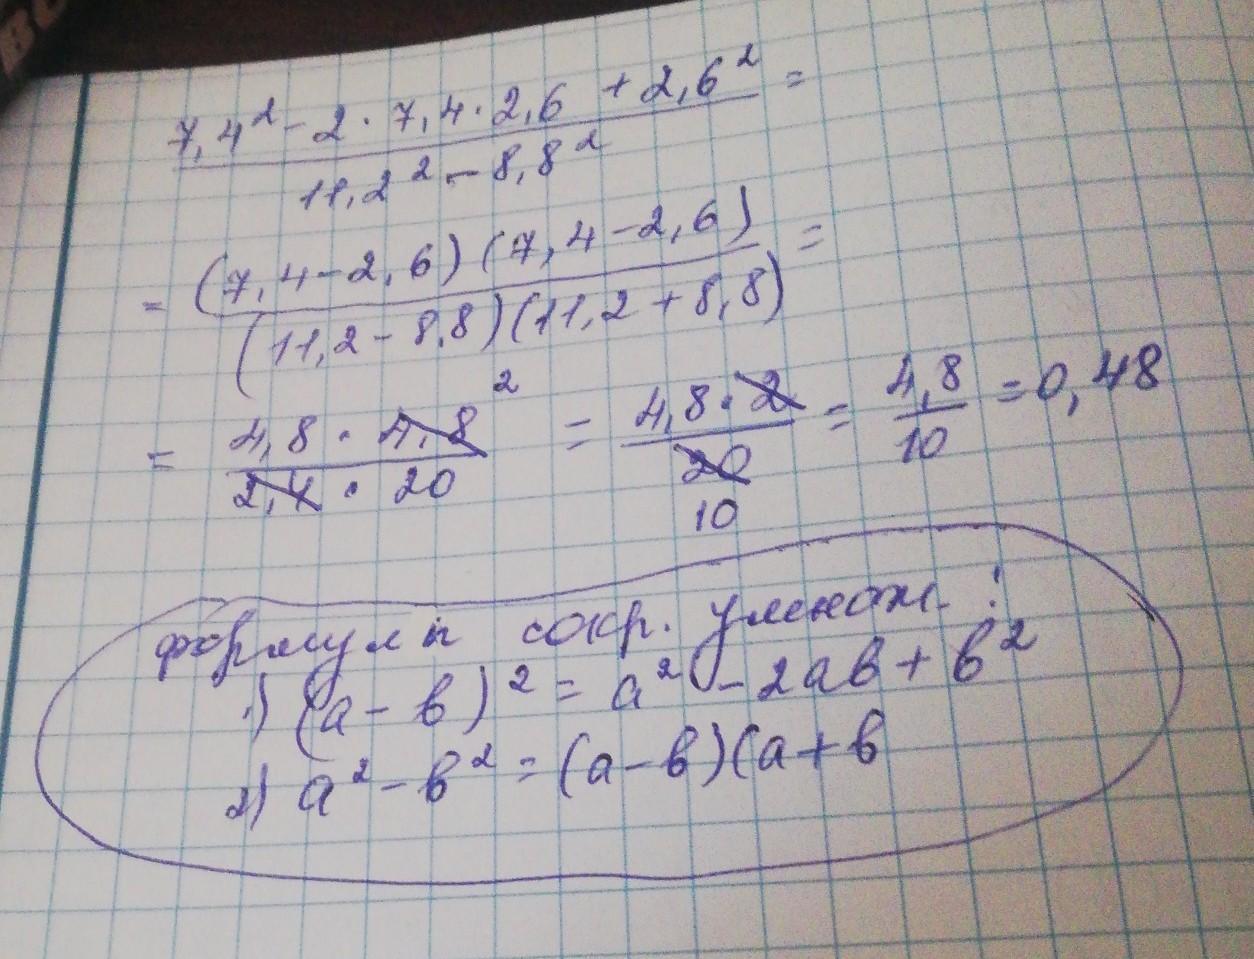 7,4² - 2 · 7,4 · 2,6 + 2,6² =
11,2² - 8,8²
= (7,4 - 2,6) (7,4 - 2,6) =
(11,2 - 8,8) (11,2 + 8,8)
= 4,8 · 4,8 2 = 4,8 · 2 = 4,8 = 0,48
2,4 · 20 20 10
10
формулы сокр. умнож.:
1) (a - b)² = a² - 2ab + b²
2) a² - b² = (a - b)(a + b